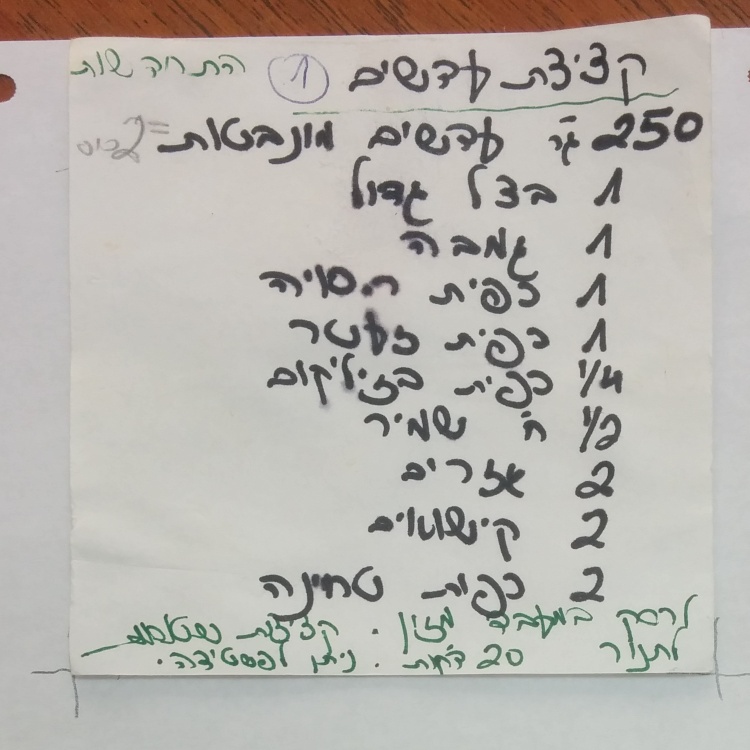 קציצת עדשים 1 התחדשות
250 גר עדשים מונבטות = 2 כוס
1 בצל גדול
1 גמבה
1 כפית ר.סויה
1 כפית זעטר
1/4 כפית בזיליקום
1/2 ח' שמיר
2 גזרים
2 קישואים
2 כפות טחינה
לרסק במעבד מזון. קציצות
לתנור 20 דקות. ניתן לפשטידה.